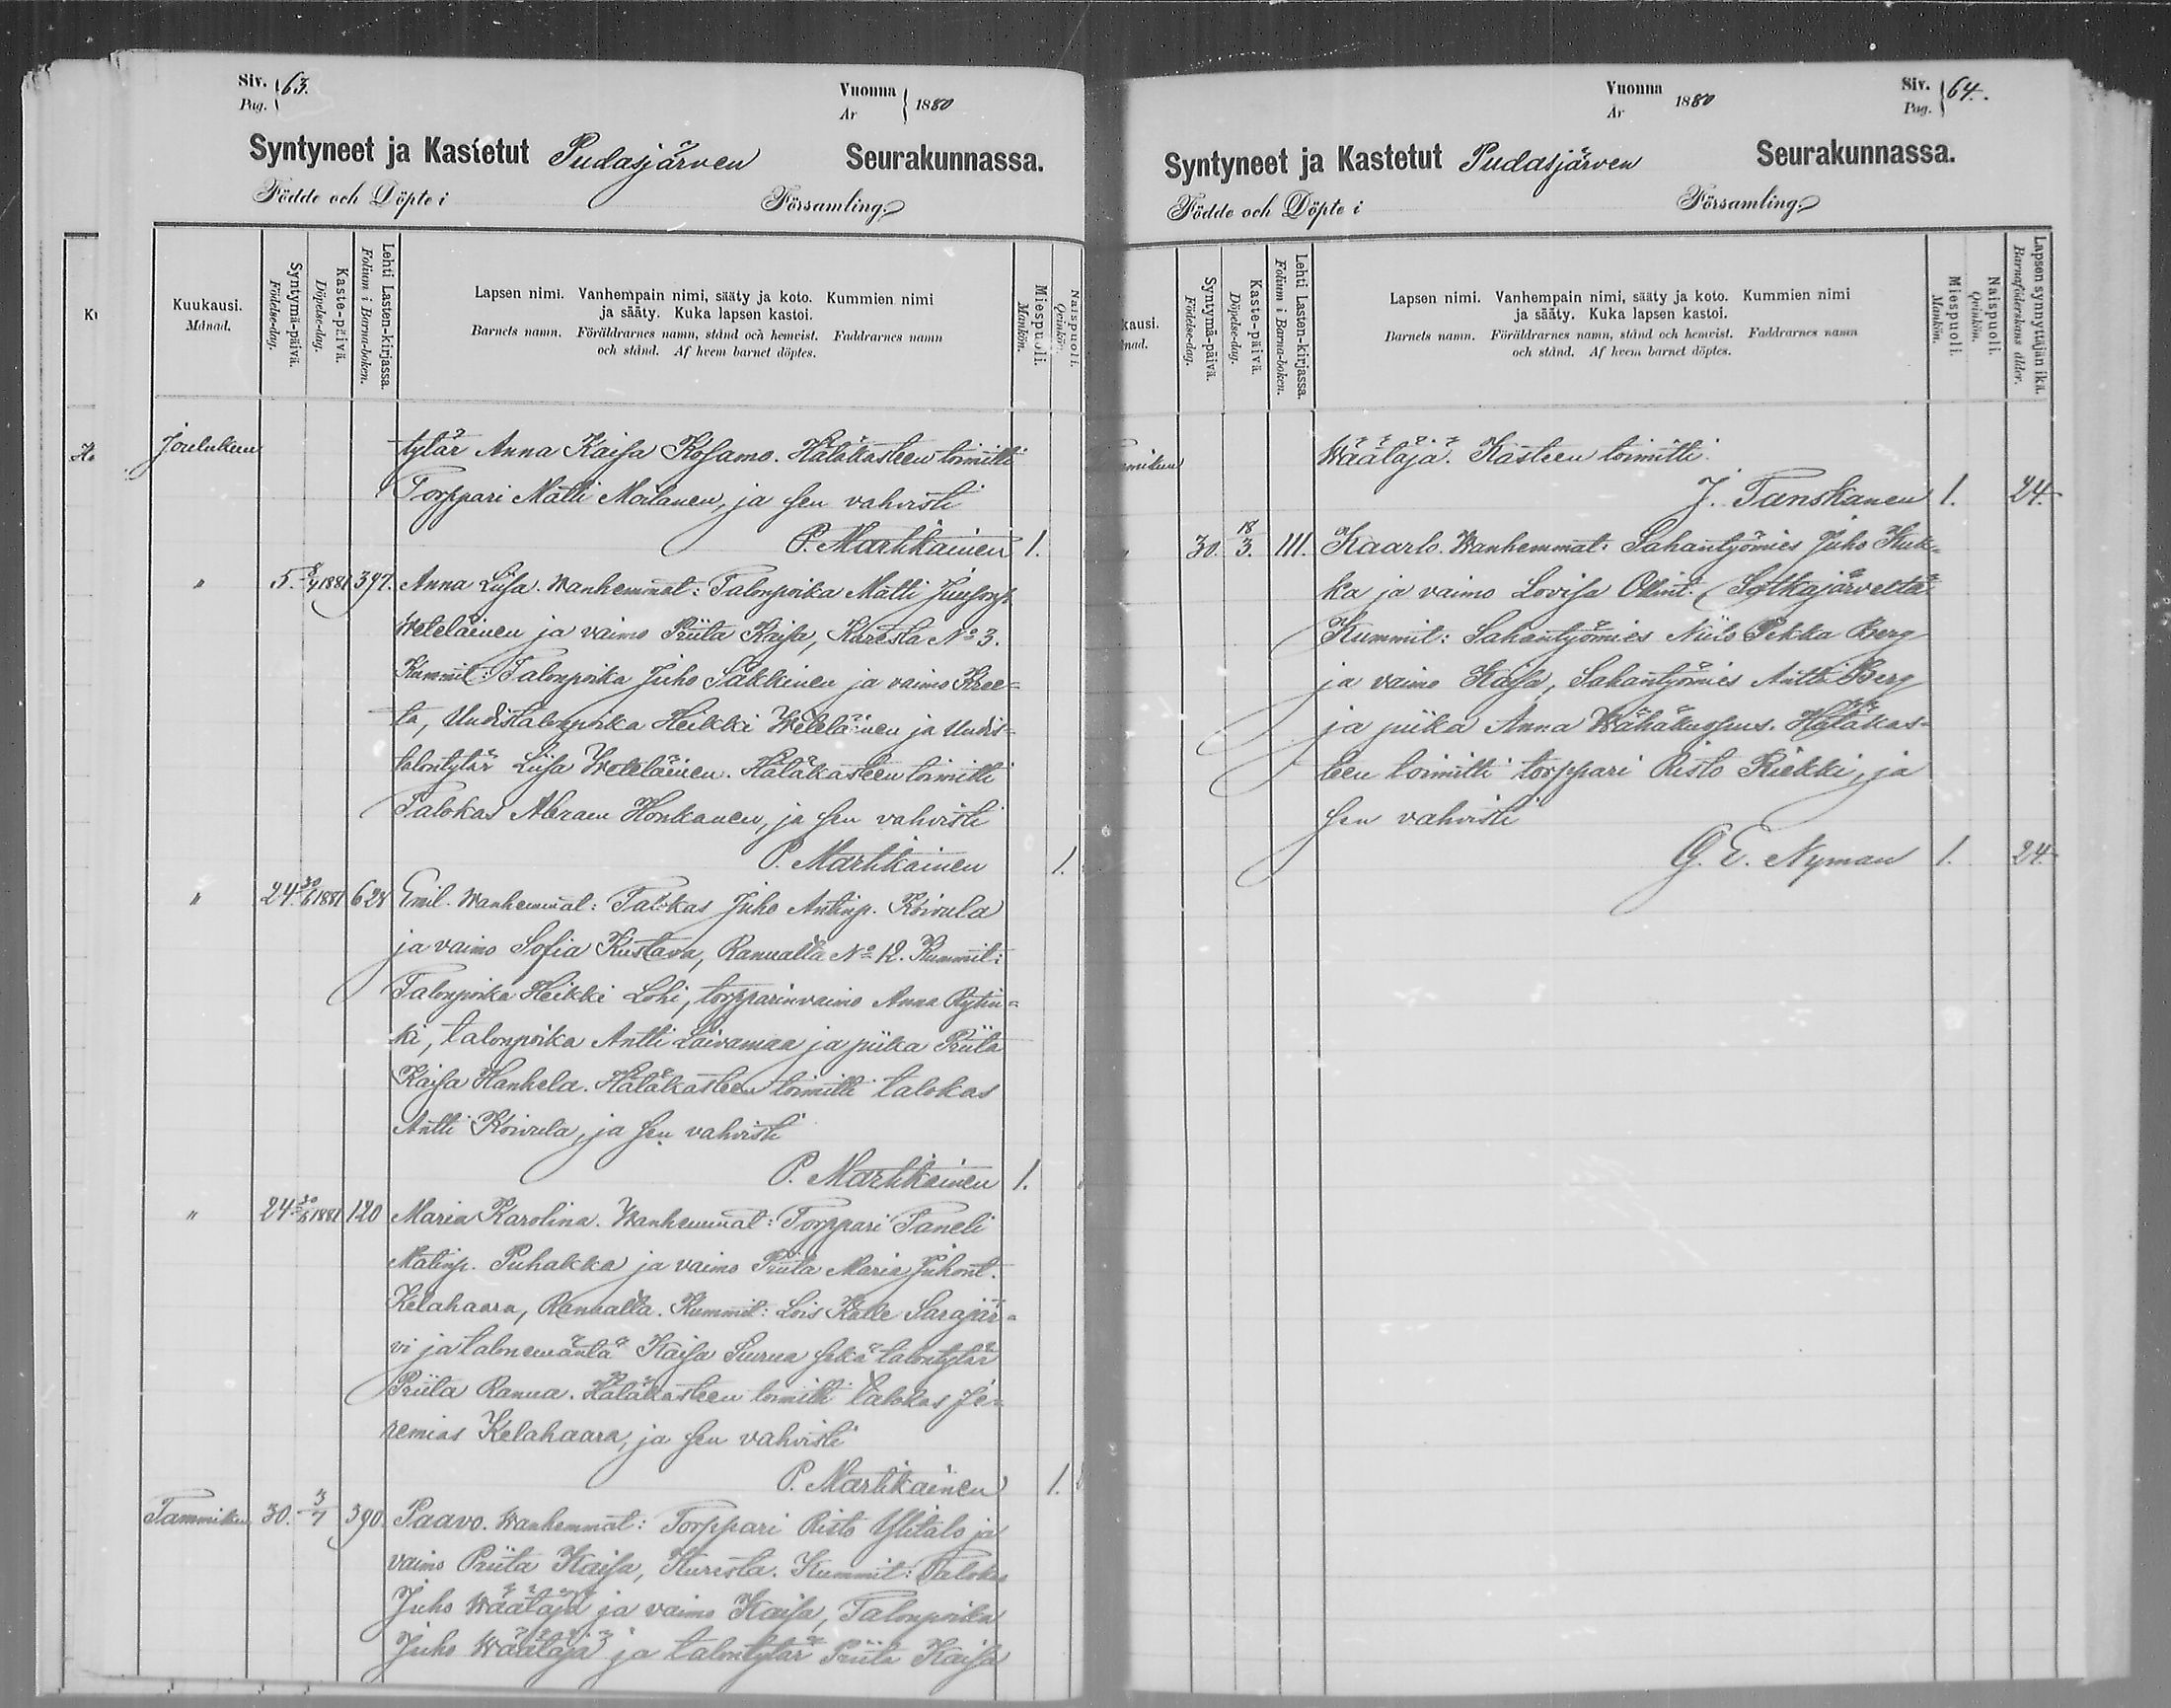 Siv. 63.
Pag.
Vuonna
År 1880
Syntyneet ja Kastetut Pudasjärven Seurakunnassa.
Födde och Döpte i Församling.
Kuukausi.
Månad.
Syntymä-päivä.
Födelse-dag.
Kaste-päivä.
Döpelse-dag.
Lehti Lasten-kirjassa.
Folium i Barna-boken.
Lapsen nimi. Vanhempain nimi, sääty ja koto. Kummien nimi
ja sääty. Kuka lapsen kastoi.
Barnets namn. Föräldrarnes namn, stånd och hemvist. Faddrarnes namn
och stånd. Af hvem barnet döptes.
Miespuoli.
Mankön.
Naispuoli.
Qvinkön.
Joulukuu tytär Anna Kaisa Kosamo. Hätäkasteen toimitti
Torppari Matti Moilanen, ja sen vahvisti
P. Martikainen 1.
" 5. 1881 397. Anna Liisa. Wanhemmat: Talonpoika Matti
Weteläinen ja vaimo Priita Kaisa, Kuresta No 3.
Kummit: Talonpoika Juho Säkkinen ja vaimo Kree-
ta, Uudistalonpoika Heikki Weteläinen ja Uudis-
talontytär Liisa Weteläinen. Hätäkasteen toimitti
Talokas Abram Honkanen, ja sen vahvisti
P. Martikainen 1.
" 24. 30/6 1881 628 Emil. Wanhemmat: Talokas Juho Antinp. Koivula
ja vaimo Sofia Kustava, Ranualta No 12. Kummit:
Talonpoika Heikki Lohi, torpparinvaimo Anna Rytin-
ki, talonpoika Antti Laivamaa ja piika Priita
Kaisa Hanhela. Hätäkasteen toimitti talokas
Antti Koivula, ja sen vahvisti
P. Martikainen 1.
" 24. 30/6 1881 120 Maria Karolina. Wanhemmat: Torppari Taneli
Matinp. Puhakka ja vaimo Priita Maria Juhont.
Kelahaara, Ranualta. Kummit: Lois Kalle Sarajär-
vi ja talonemäntä Kaisa Siurua sekä talontytär
Priita Ranua. Hätäkasteen toimitti talokas Je-
remias Kelahaara, ja sen vahvisti
P. Martikainen 1.
Tammikuu 30. 3/7 390. Paavo. Wanhemmat: Torppari Risto Ylitalo ja
vaimo Priita Kaisa, Kuresta. Kummit: Talokas
Juho Wäätäjä ja vaimo Kaisa, Talonpoika
Juho Wäätäjä ja talontytär Priita Kaisa
Vuonna
År 1880
Siv. 64.
Pag.
Syntyneet ja Kastetut Pudasjärven Seurakunnassa.
Födde och Döpte i Församling.
kausi.
nad.
Syntymä-päivä.
Födelse-dag.
Kaste-päivä.
Döpelse-dag.
Lehti Lasten-kirjassa.
Folium i Barna-boken.
Lapsen nimi. Vanhempain nimi, sääty ja koto. Kummien nimi
ja sääty. Kuka lapsen kastoi.
Barnets namn. Föräldrarnes namn, stånd och hemvist. Faddrarnes namn
och stånd. Af hvem barnet döptes.
Miespuoli.
Mankön.
Naispuoli.
Qvinkön.
Lapsen synnyttäjän ikä.
Barnaföderskans ålder.
mikuu Wäätäjä. Kasteen toimitti
J. Tanskanen 1. 24.
" 30. 18/3. 111. Kaarlo. Wanhemmat: Sahantyömies Juho Kuk-
ka ja vaimo Lovisa Ollint. Sotkajärveltä
Kummit: Sahantyömies Niilo Pekka Berg
ja vaimo Kaisa, Sahantyömies Antti Berg
ja piika Anna Wähäkuopus. Hätäkas-
teen toimitti torppari Risto Riekki, ja
sen vahvisti
G. E. Nyman 1. 24.